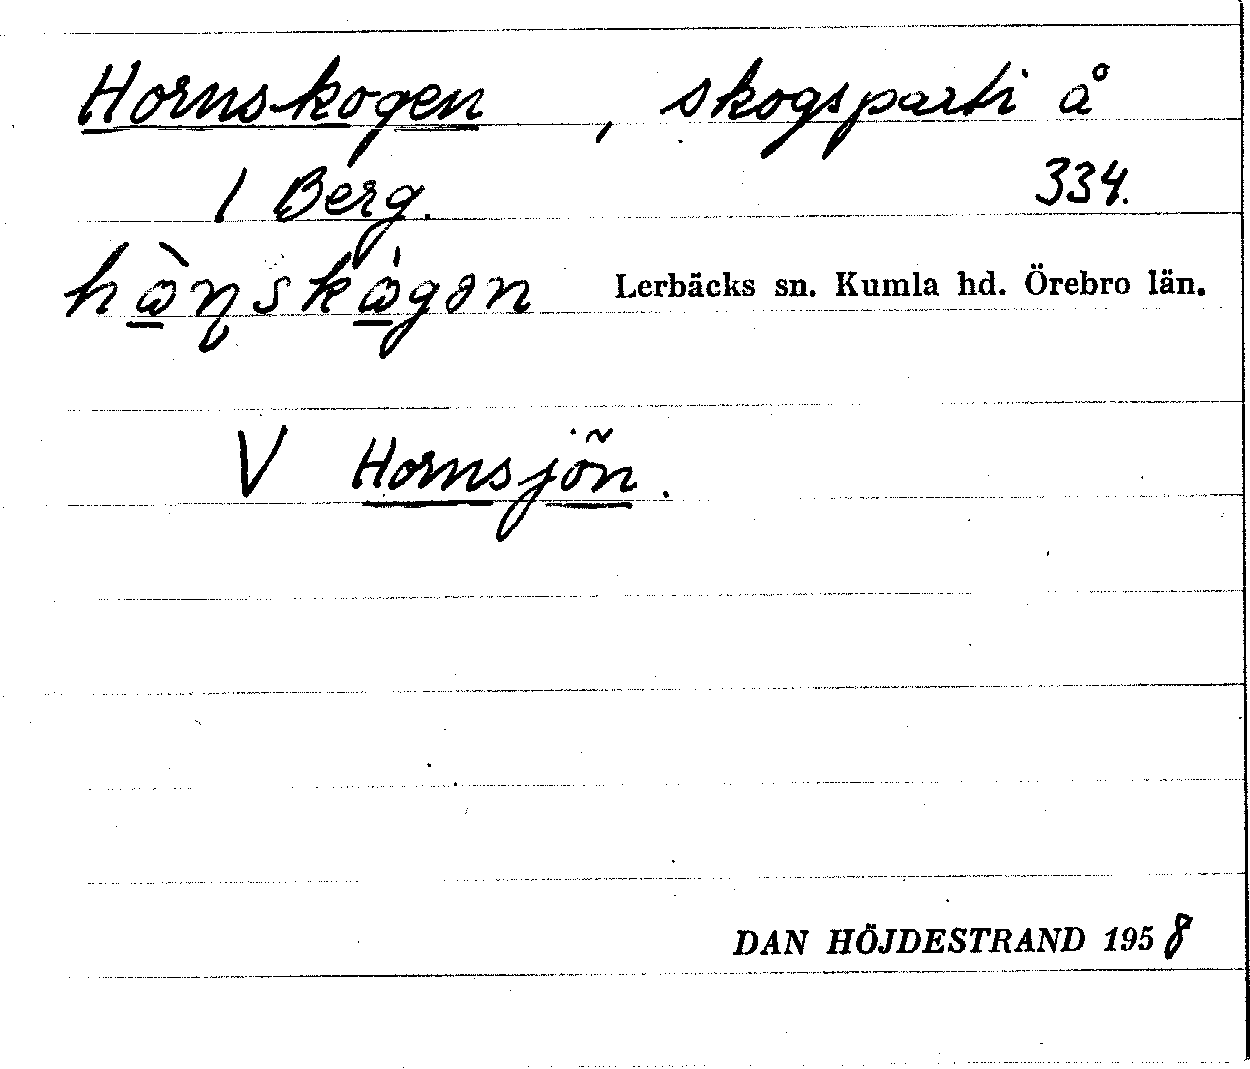 Hornskogen, skogsparti å
1 Berg. 334.
Lerbäcks sn. Kumla hd. Örebro län.
V Hornsjön.
DAN HÖJDESTRAND 1958